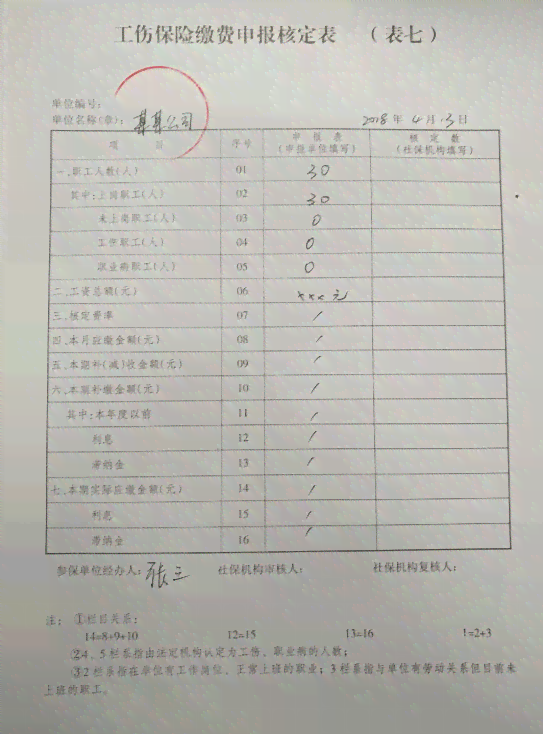 工伤保险缴费申报核定表 （表七）
单位编号：
单位名称（章）：某某公司 2018年4月13日
项 目 序号 申报数（申报单位填写） 核定数（社保机构填写）
一、职工人数（人） 01 30
其中：上岗职工（人） 02 30
未上岗职工（人） 03 0
工伤职工（人） 04 0
职业病职工（人） 05 0
二、工资总额（元） 06 xxx元
三、核定费率 07 /
四、本月应缴金额（元） 08 /
五、本期补（减）收金额（元） 09 /
六、本期补缴金额（元） 10 /
其中：本年度以前 11 /
利息 12 /
滞纳金 13 /
七、本期实际应缴金额（元） 14 /
利息 15 /
滞纳金 16 /
参保单位经办人：张三 社保机构审核人： 社保机构复核人：
注： ①栏目关系：
14=8+9+10 12=15 13=16 1=2+3
②4、5栏系指由法定机构认定为工伤、职业病的人数；
③2栏系指在单位有工作岗位、正常上班的职业；3栏系指与单位有劳动关系但目前未
上班的职工。